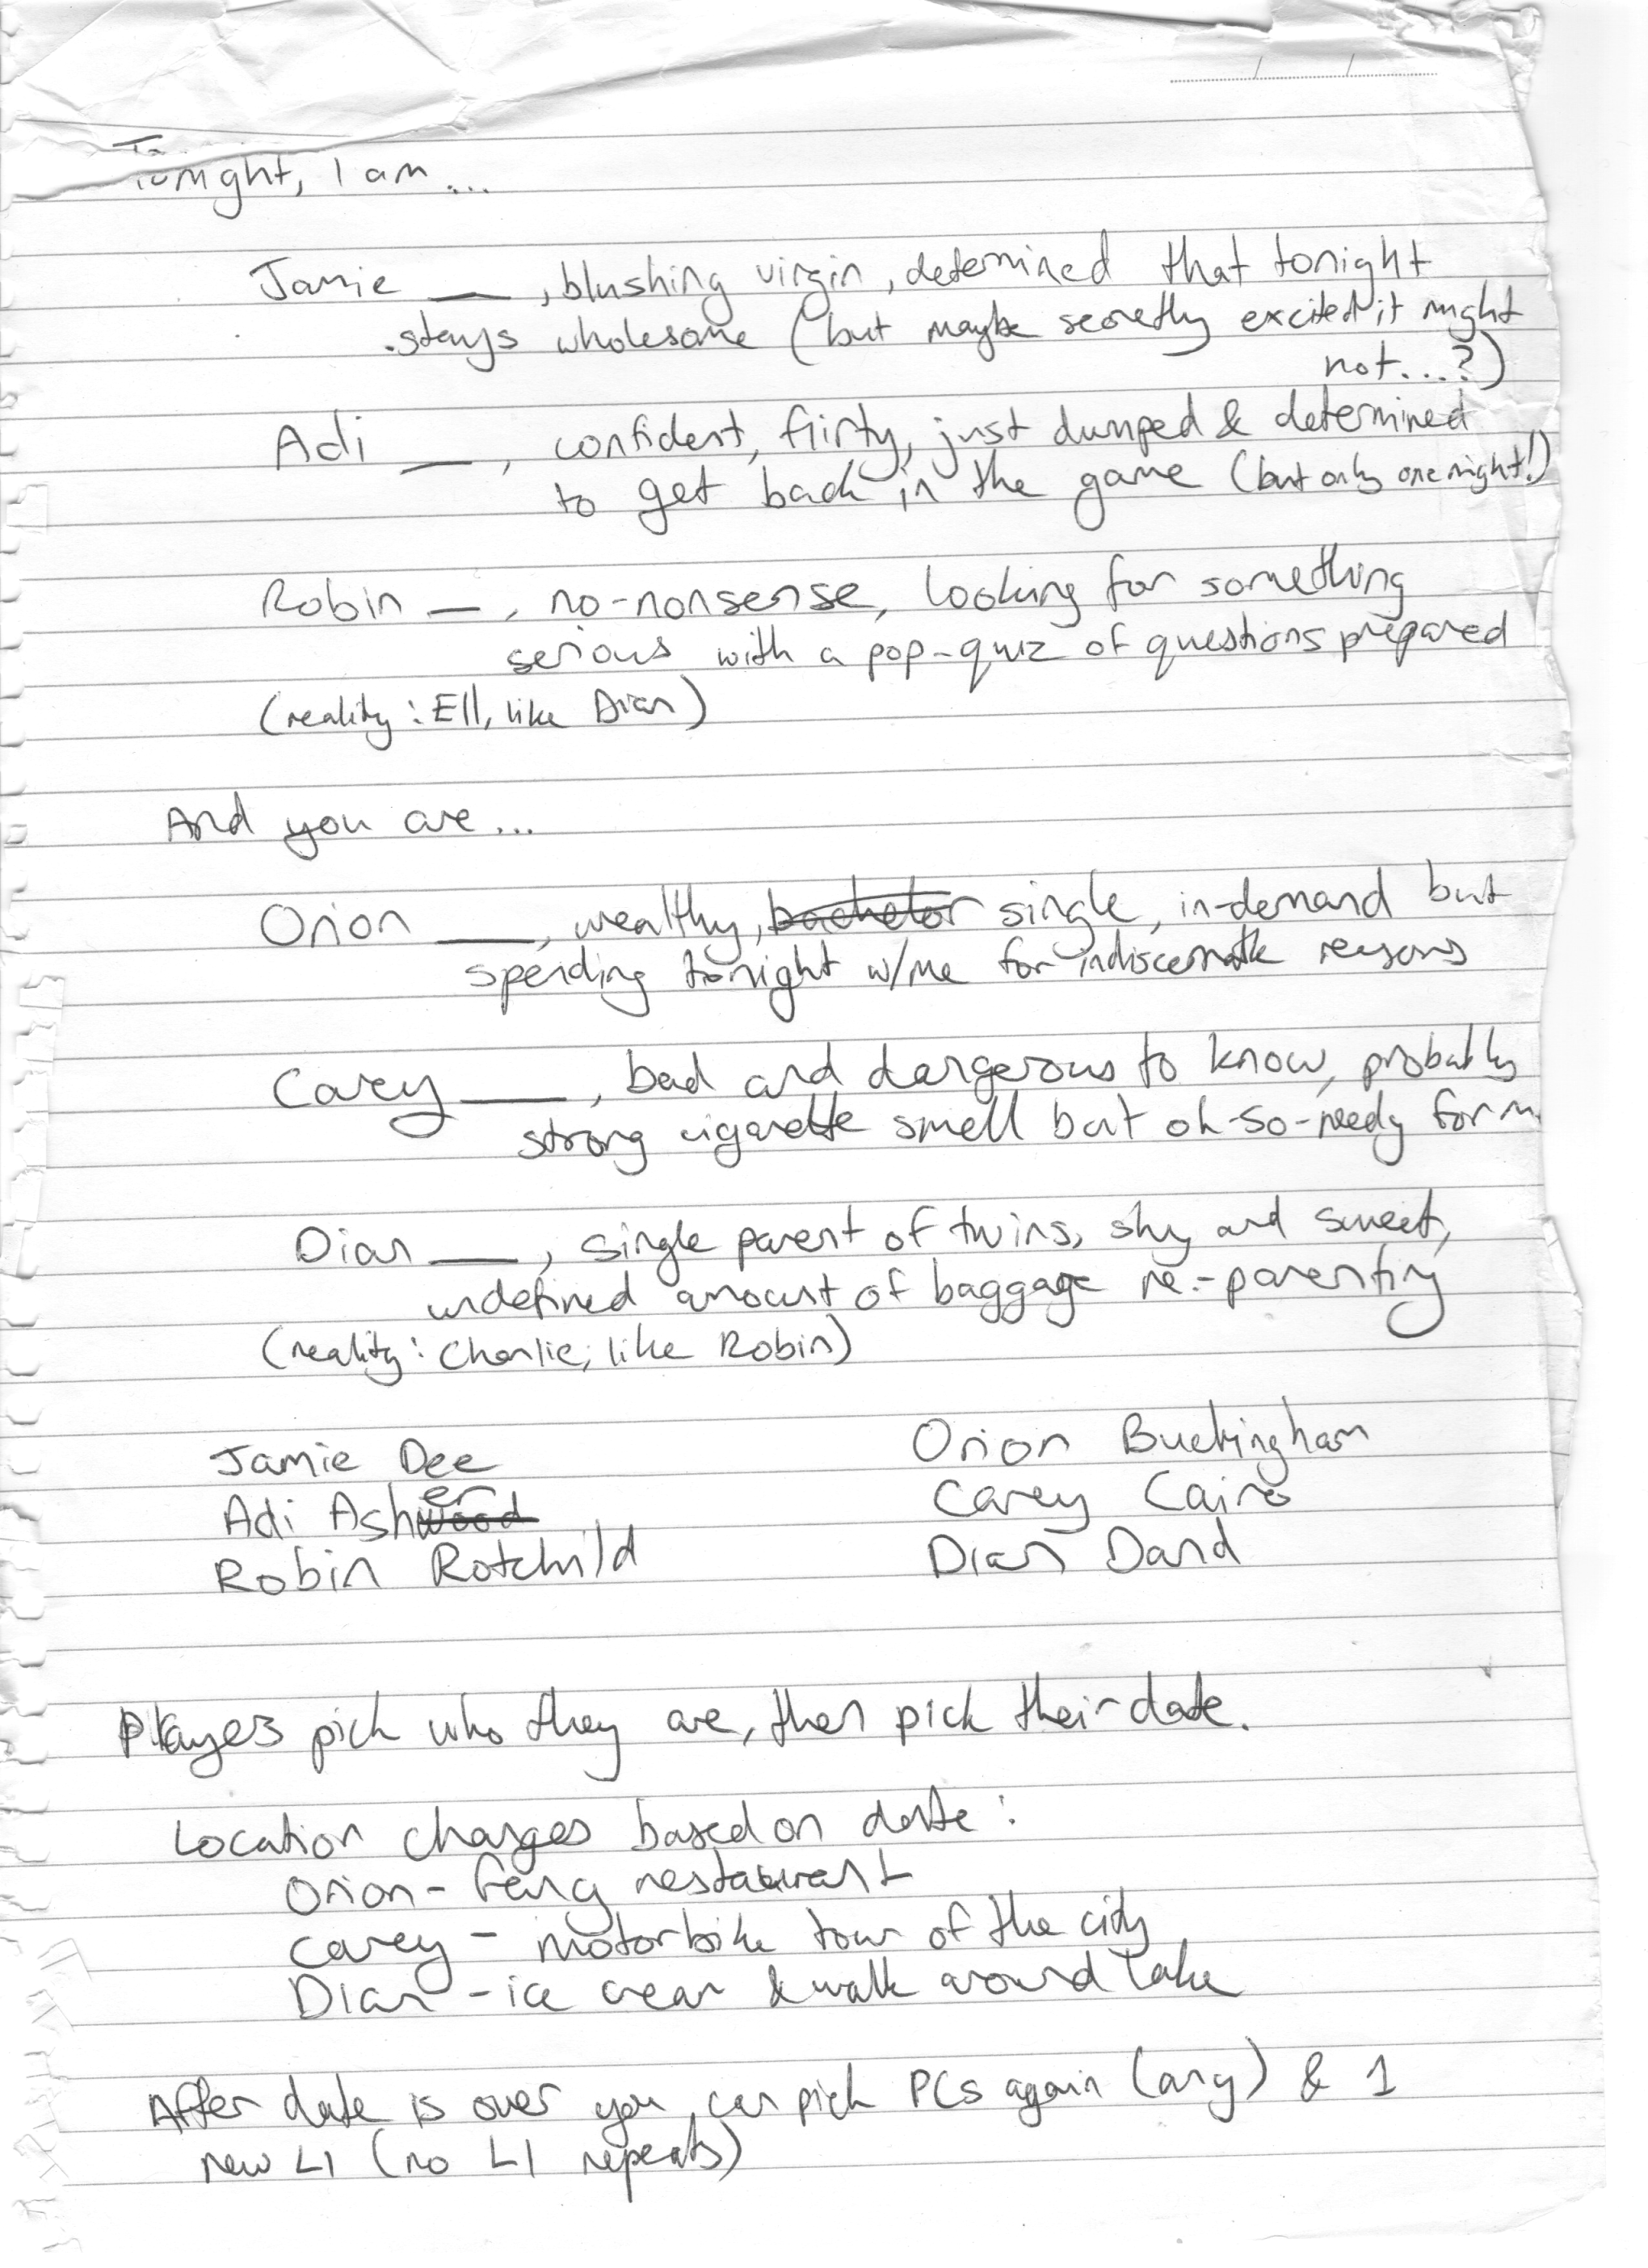 Tonight, I am...
Jamie __, blushing virgin, determined that tonight
stays wholesome (but maybe secretly excited it might
not...?)
Adi __, confident, flirty, just dumped & determined
to get back in the game (but only one night!)
Robin __, no-nonsense, looking for something
serious with a pop-quiz of questions prepared
(reality: Ell, like Dian)
And you are...
Orion __, wealthy, bachelor single, in-demand but
spending tonight w/me for indiscernible reasons
Carey __, bad and dangerous to know, probably
strong cigarette smell but oh-so-needy for m
Dian __, single parent of twins, shy and sweet,
undefined amount of baggage re.-parenting
(reality: Charlie, like Robin)
Jamie Dee
Adi Ashwood er
Robin Rotchild
Orion Buckingham
Carey Cairo
Dian Dand
Players pick who they are, then pick their date.
Location changes based on date:
Orion - fancy restaurant
Carey - motorbike tour of the city
Dian - ice cream & walk around lake
After date is over you can pick PCs again (any) & 1
new LI (no LI repeats)